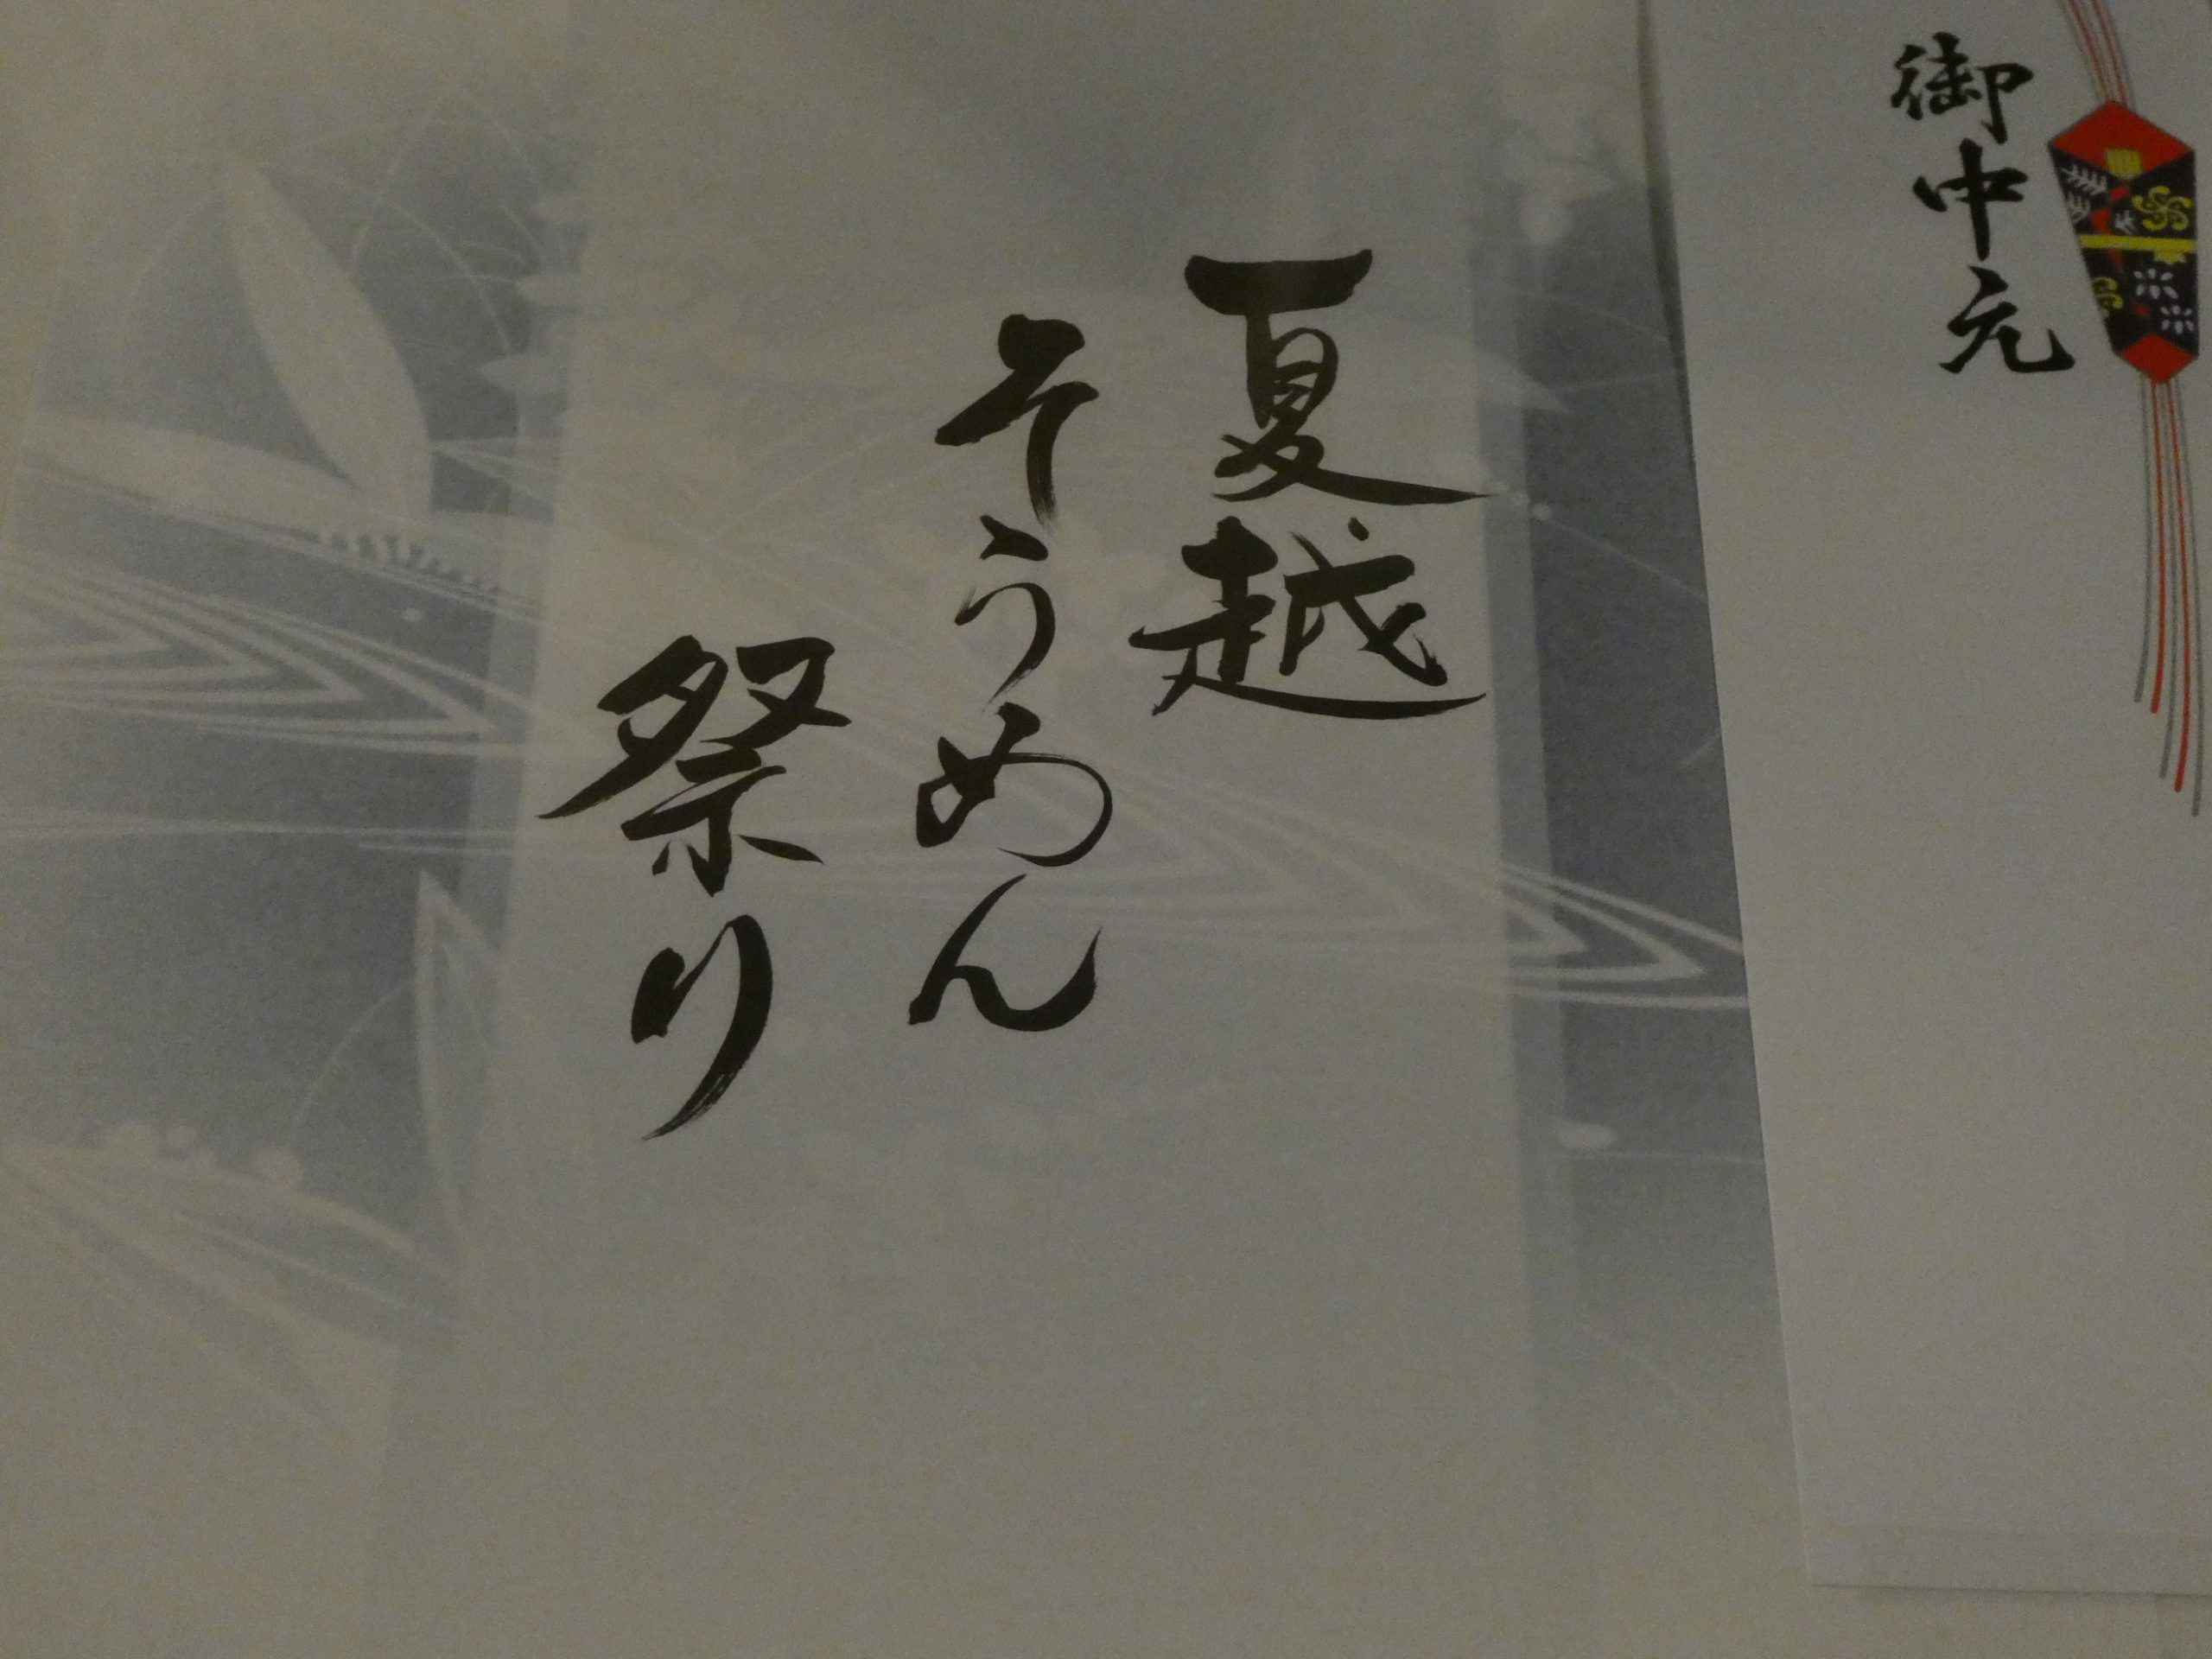 御中元
夏越
そうめん
祭り